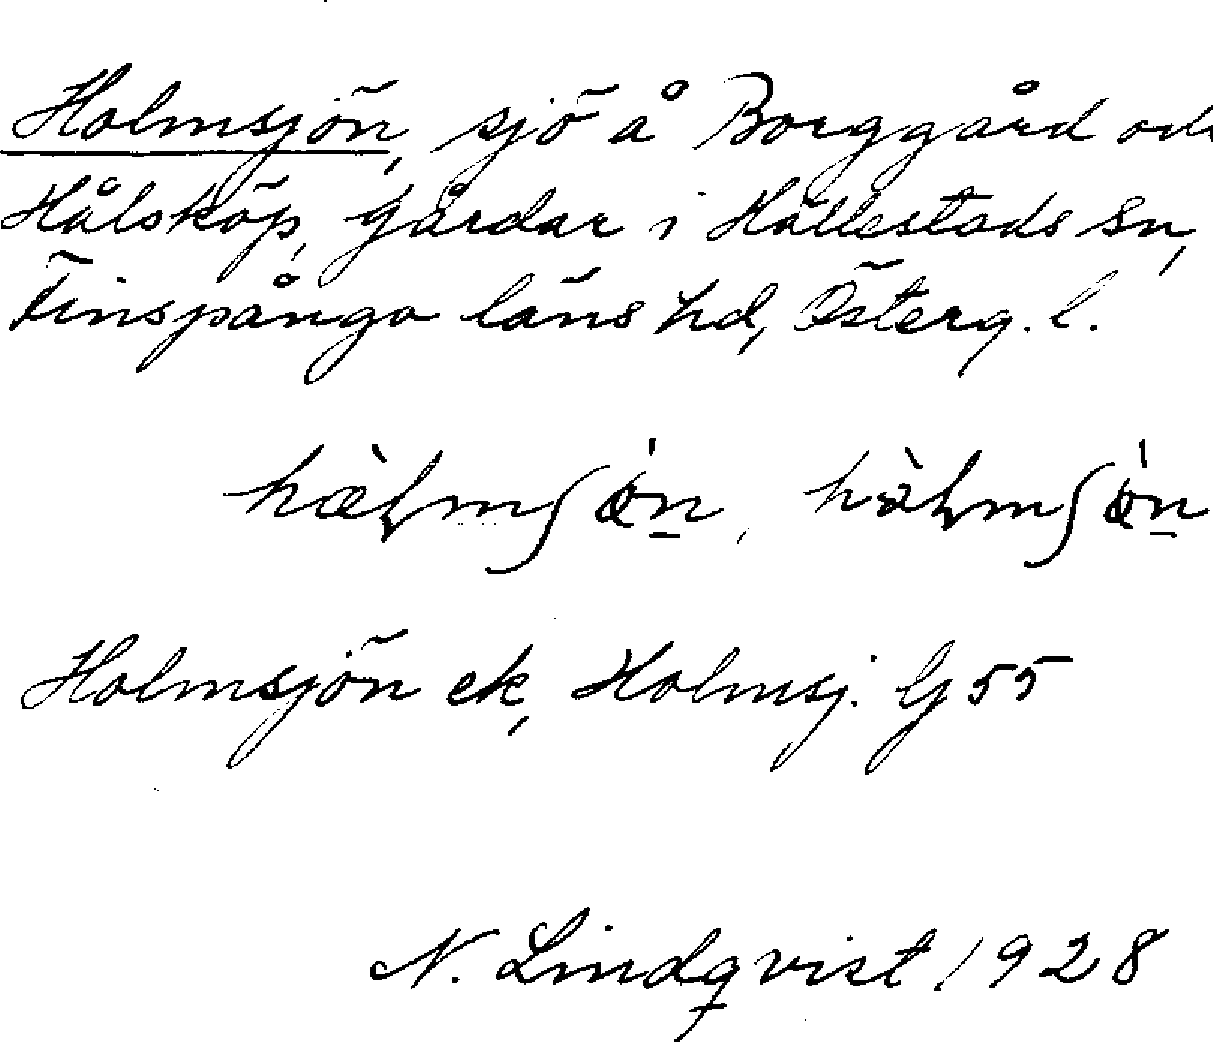 Holmsjön, sjö å Borggård och
Hålsköp, gårdar i Hällestads sn,
Finspånga läns hd, Österg. l.
Holmsjön ek, Holmsj. G 55
N. Lindqvist 1928